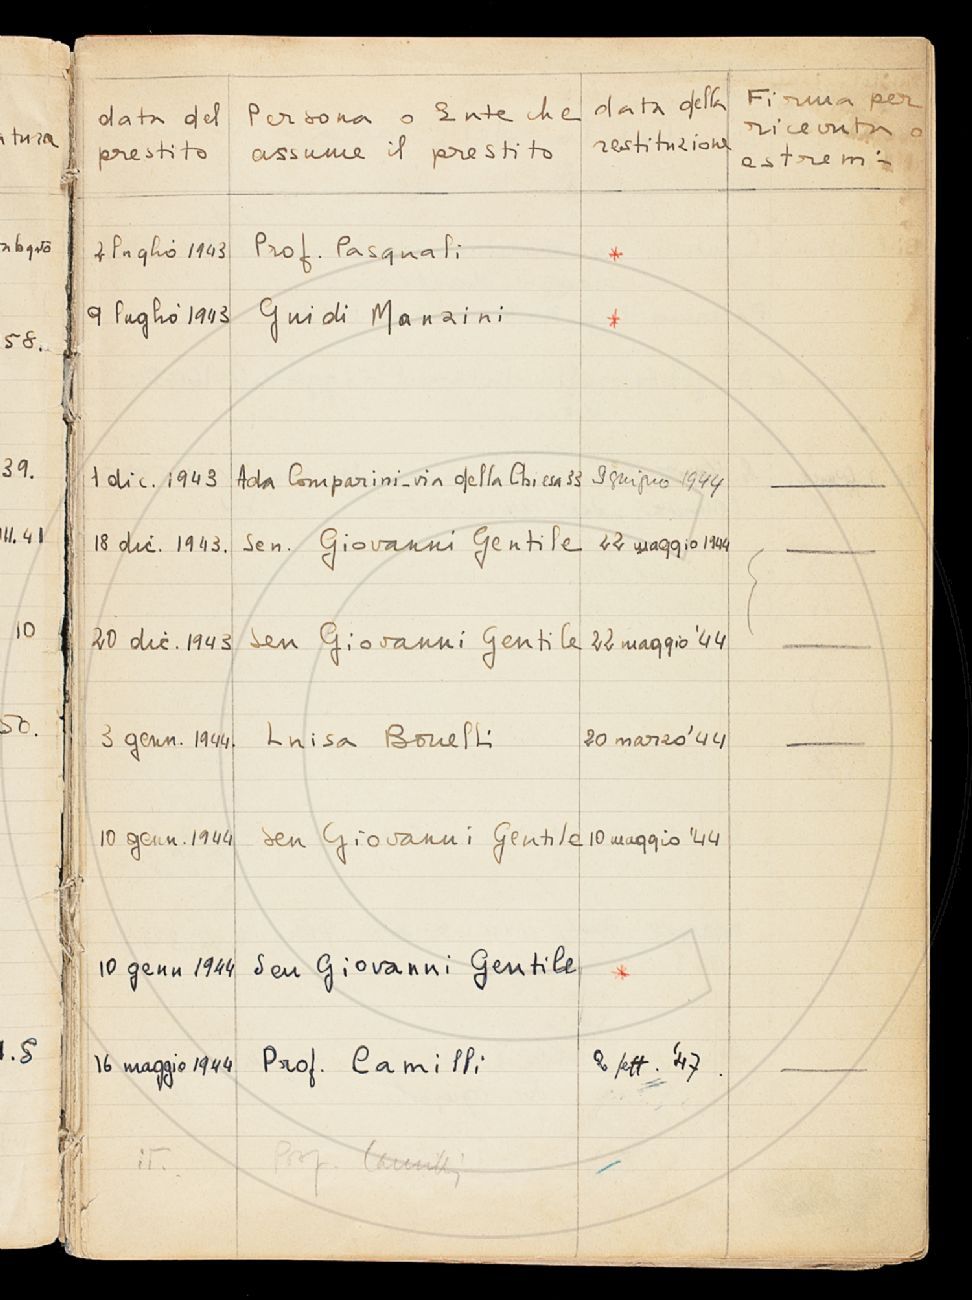 data del prestito
Persona o Ente che assume il prestito
data della restituzione
Firma per ricevuta o estremi
2 luglio 1943 Prof. Pasquali *
58. 9 luglio 1943 Guidi Manzini *
39. 1 dic. 1943 Ada Comparini - via della Chiesa 33 9 giugno 1944
41 18 dic. 1943. Sen. Giovanni Gentile 22 maggio 1944
10 20 dic. 1943 Sen Giovanni Gentile 22 maggio '44
50. 3 genn. 1944. Luisa Bonelli 20 marzo '44
10 genn. 1944 Sen Giovanni Gentile 10 maggio '44
10 genn 1944 Sen Giovanni Gentile *
16 maggio 1944 Prof. Camilli 2 sett. '47.
Prof. Camilli